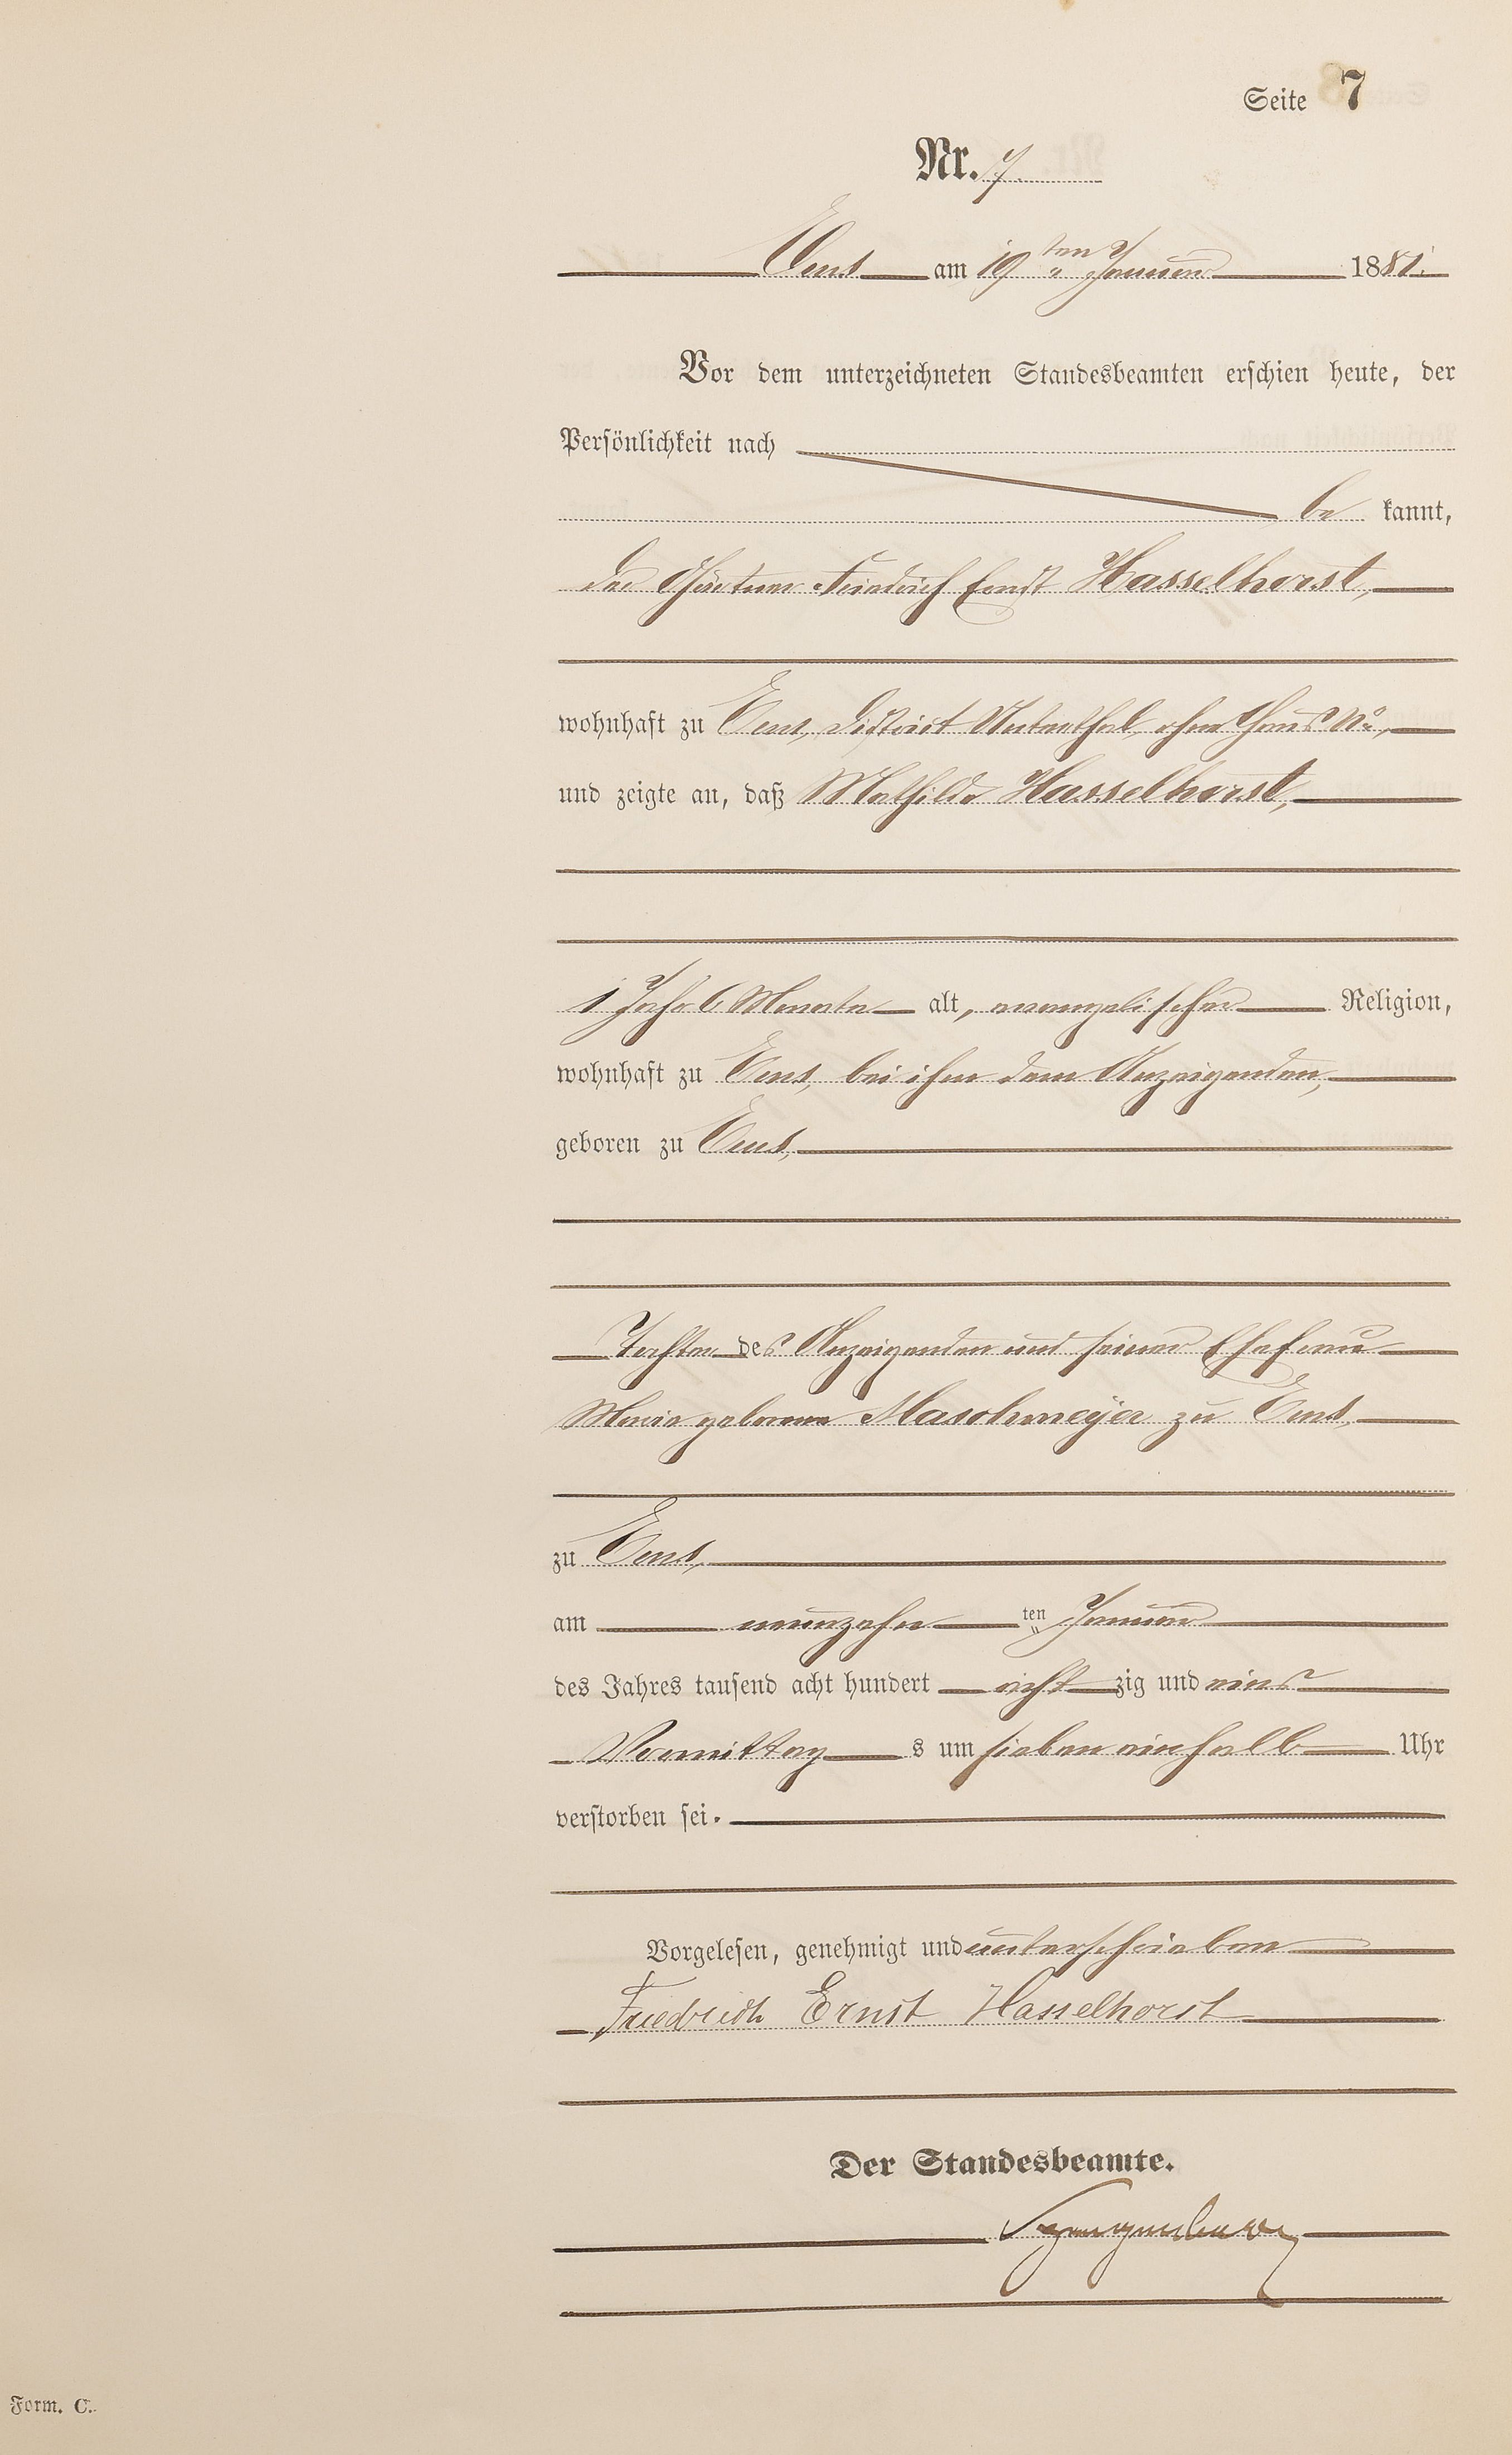 Seite 7
Nr. 7.
Ems am 19ten Januar 1881.
Vor dem unterzeichneten Standesbeamten erschien heute, der
Persönlichkeit nach
be kannt,
der Gärtner Friedrich Ernst Hasselhorst,
wohnhaft zu Ems, District Unterthal, ohne Haus No,
und zeigte an, daß Mathilde Hasselhorst,
1 Jahr 6 Monate alt, evangelischer Religion,
wohnhaft zu Ems, bei ihm dem Anzeigenden,
geboren zu Ems,
Tochter des Anzeigenden und seiner Ehefrau
Marie geborene Maschmeÿer zu Ems,
zu Ems,
am neunzehn ten Januar
des Jahres tausend acht hundert acht zig und eins
Vormittag s um sieben einhalb Uhr
verstorben sei.
Vorgelesen, genehmigt und unterschrieben
Friedrich Ernst Hasselhorst
Der Standesbeamte.
Form. C.